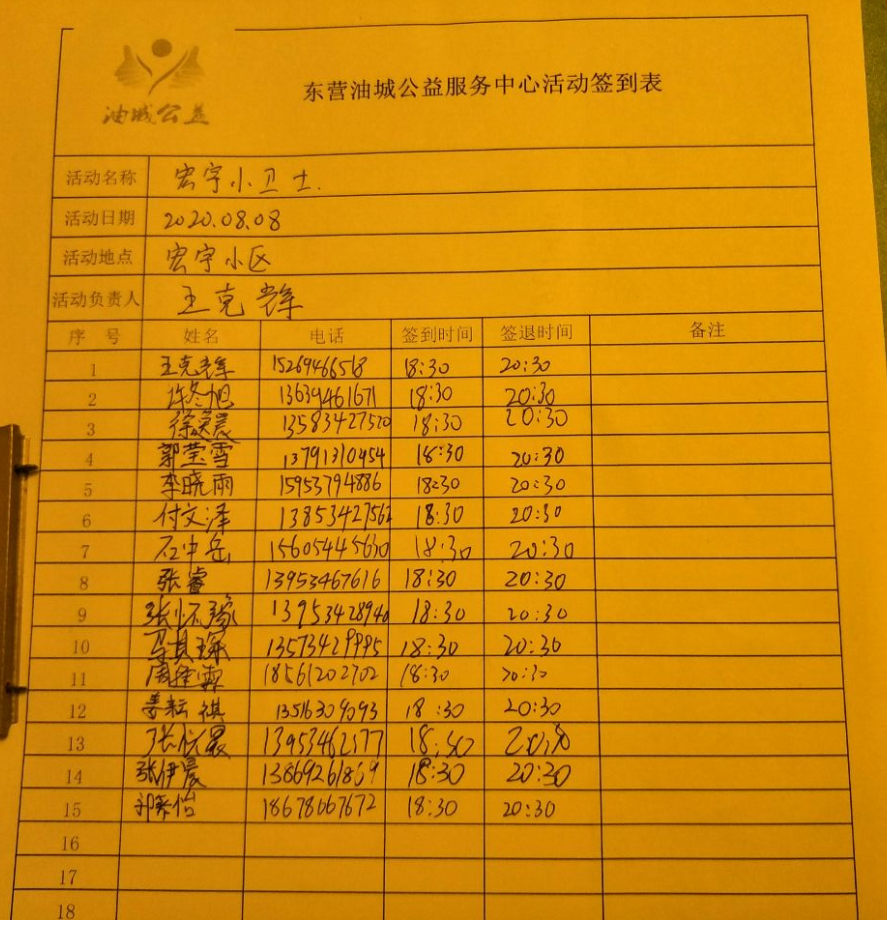 油城公益
东营油城公益服务中心活动签到表
活动名称 宏宇小卫士.
活动日期 2020.08.08
活动地点 宏宇小区
活动负责人 王克辉
序号 姓名 电话 签到时间 签退时间 备注
1 王克辉 15269466568 18:30 20:30
2 许冬旭 13639461671 18:30 20:30
3 13583427520 18:30 20:30
4 郭莹雪 13791310454 18:30 20:30
5 李晓雨 15953794886 18:30 20:30
6 付文泽 13853427562 18:30 20:30
7 石中岳 15605445630 18:30 20:30
8 张睿 13953467616 18:30 20:30
9 13953428940 18:30 20:30
10 18:30 20:30
11 18561202702 18:30 20:30
12 姜耘祺 13516309093 18:30 20:30
13
14 张伊晨 13869261869 18:30 20:30
15 18678667672 18:30 20:30
16
17
18